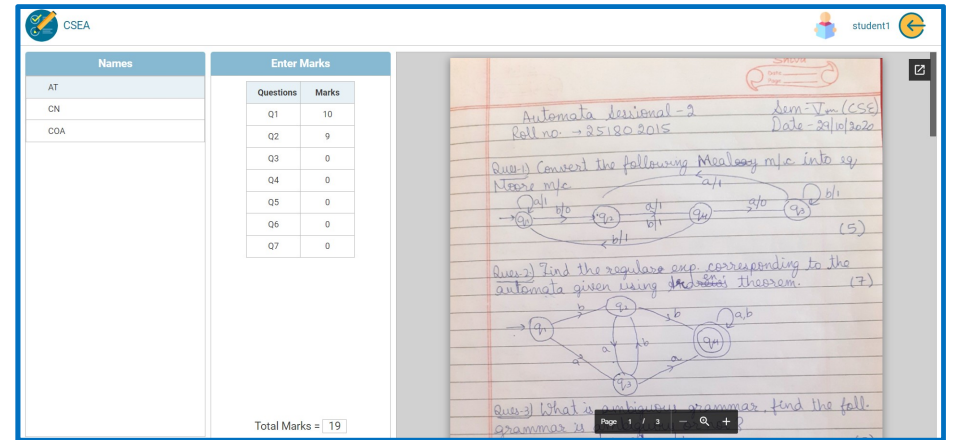 CSEA
student1
Names
AT
CN
COA
Enter Marks
Questions Marks
Q1 10
Q2 9
Q3 0
Q4 0
Q5 0
Q6 0
Q7 0
Total Marks = 19
Shiva
Date
Page
Automata Sessional-2
Sem-V (CSE)
Roll no. → 251802015
Date - 29/10/2020
Ques-1) Convert the following Mealey m/c into eq
Moore m/c.
a/1
a/1
b/0
a/1
b/1
a/0
b/1
q1
q2
q4
q3
b/1
(5)
Ques-2) Find the regular exp. corresponding to the
automata given using theorem. (7)
b
q2
b
a,b
q1
a
b
q4
a
a
q3
Ques-3) What is ambiguous grammar, find the foll.
grammar is
Page 1 / 3